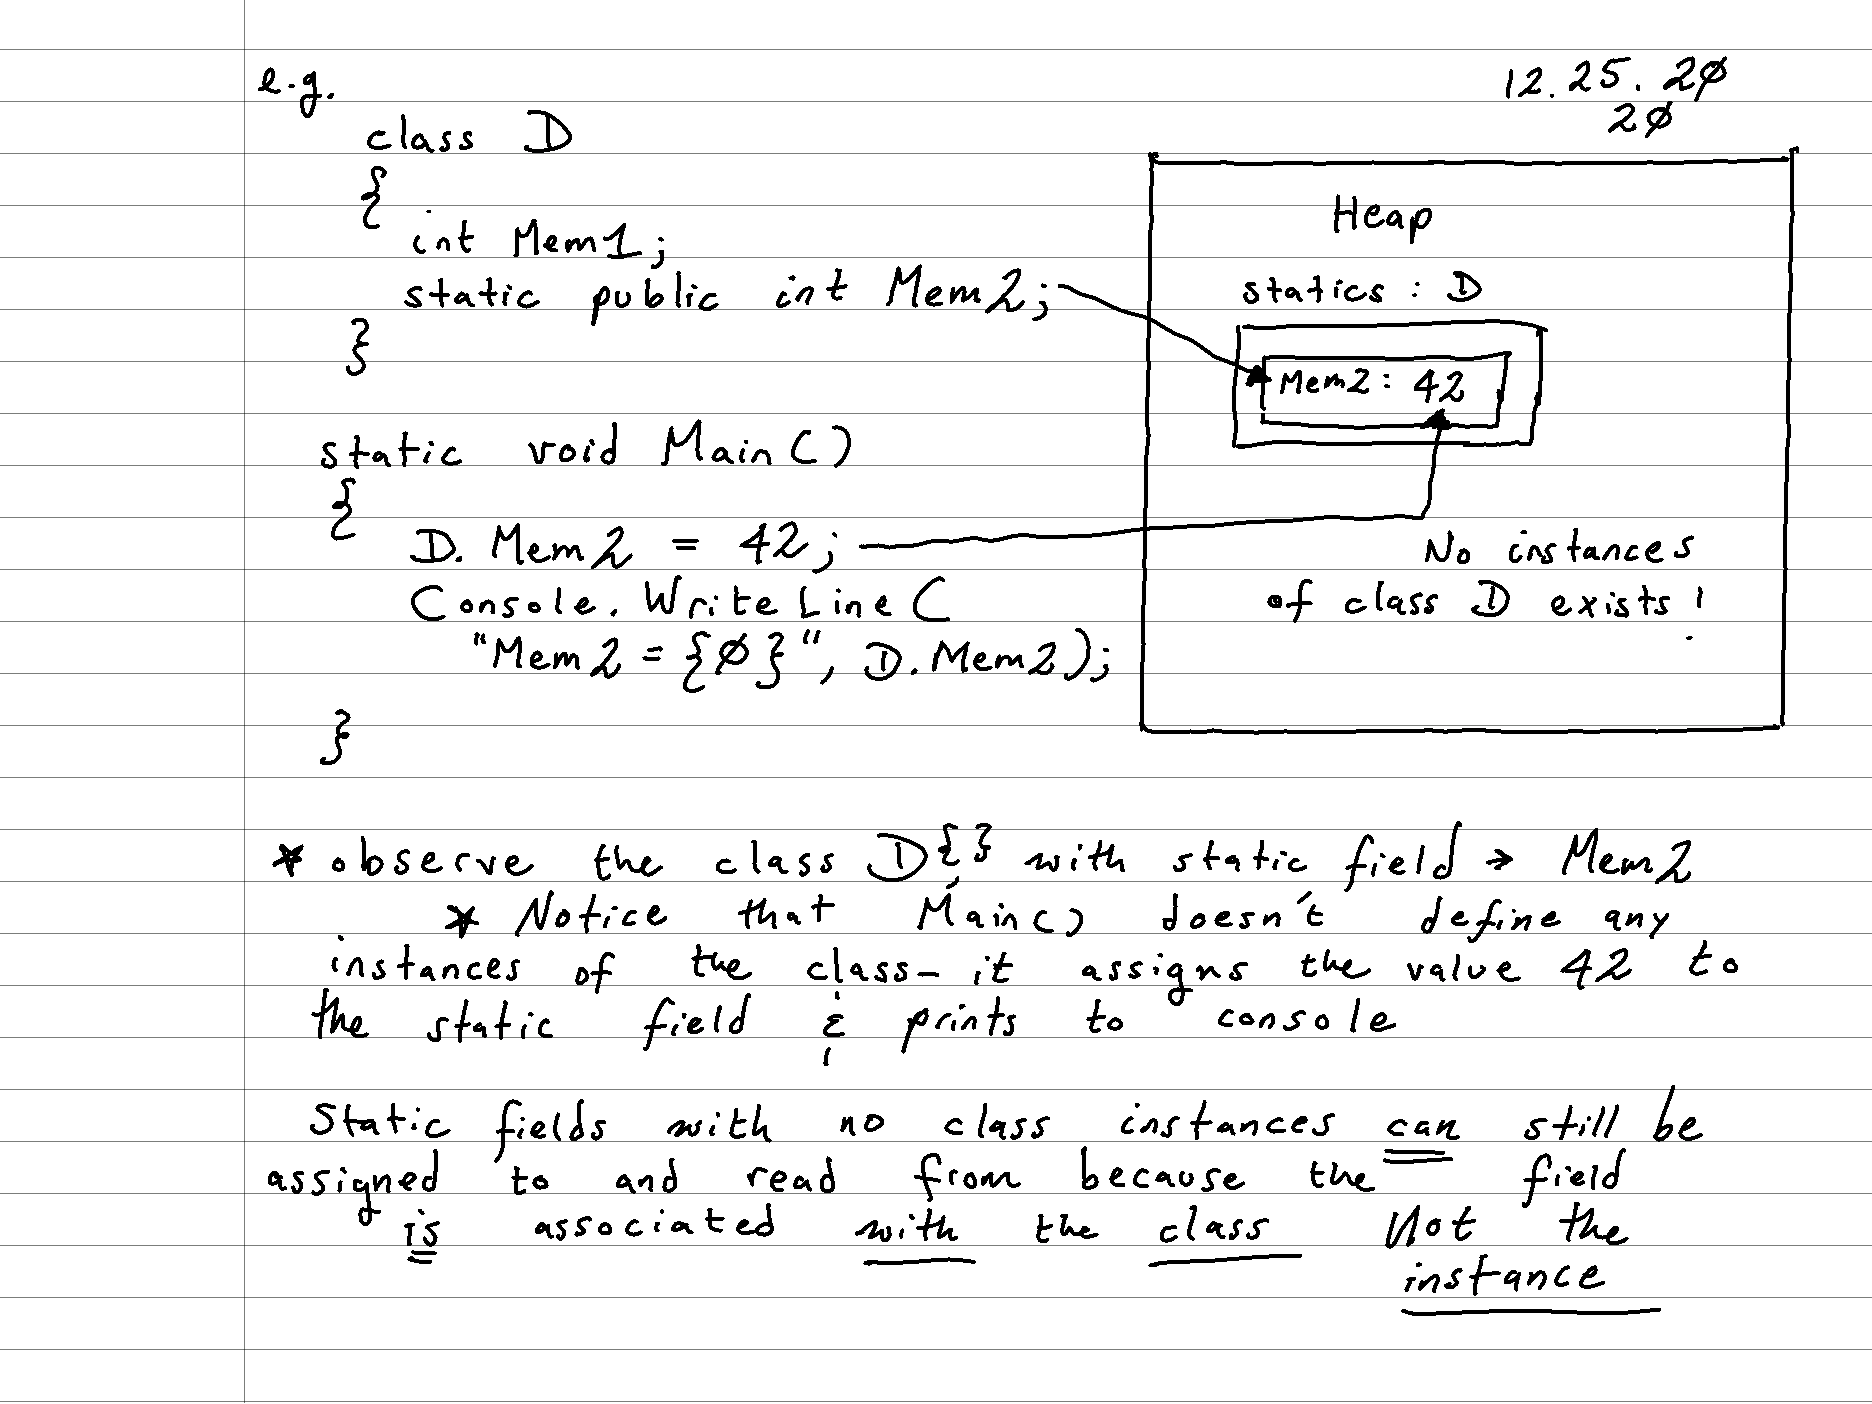 e.g.
12.25.20
20
class D
{
int Mem1;
static public int Mem2;
}
Heap
statics : D
Mem2: 42
No instances
of class D exists!
static void Main()
{
D. Mem2 = 42;
Console. WriteLine(
"Mem2 = {0}", D.Mem2);
}
* observe the class D{} with static field → Mem2
* Notice that Main() doesn't define any
instances of the class- it assigns the value 42 to
the static field & prints to console
Static fields with no class instances can still be
assigned to and read from because the field
is associated with the class Not the
instance